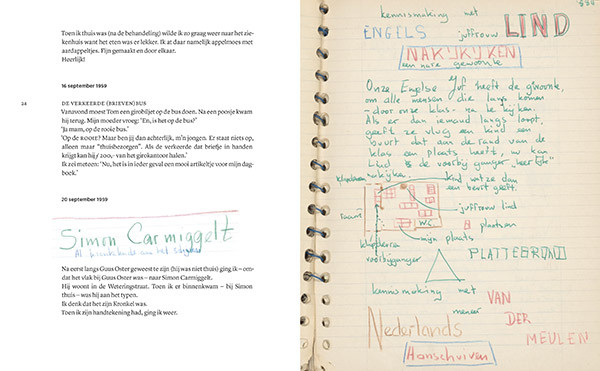 Toen ik thuis was (na de behandeling) wilde ik zo graag weer naar het zie-
kenhuis want het eten was er lekker. Ik at daar namelijk appelmoes met
aardappeltjes. Fijn gemaakt en door elkaar.
Heerlijk!
16 september 1959
28
DE VERKEERDE (BRIEVEN)BUS
Vanavond moest Tom een girobiljet op de bus doen. Na een poosje kwam
hij terug. Mijn moeder vroeg: "En, is het op de bus?'
'Ja mam, op de rooie bus.'
'Op de ROOIE? Maar ben jij dan achterlijk, m'n jongen. Er staat niets op,
alleen maar "thuisbezorgen". Als de verkeerde dat briefje in handen
krijgt kan hij ƒ 200,- van het girokantoor halen.'
Ik zei meteen: 'Nu, het is in ieder geval een mooi artikeltje voor mijn dag-
boek.'
20 september 1959
Simon Carmiggelt
Al kronkelende aan het
Na eerst langs Guus Oster geweest te zijn (hij was niet thuis) ging ik – om-
dat het vlak bij Guus Oster was – naar Simon Carmiggelt.
Hij woont in de Weteringstraat. Toen ik er binnenkwam – bij Simon
thuis – was hij aan het typen.
Ik denk dat het zijn Kronkel was.
Toen ik zijn handtekening had, ging ik weer.
kennismaking met
ENGELS juffrouw LIND
NAKIJKIJKEN
een nare gewoonte
Onze Engelse Juf heeft de gewoonte,
om alle mensen die langs komen
– door onze klas – na te kijken.
Als er dan iemand langs loopt,
geeft ze vlug een kind een
beurt dat aan de rand van de
klas een plaats heeft, nu kan
Lind de voorbij ganger
nakijken.
kind wat ze dan
een beurt geeft.
juffrouw lind
plaatsen
mijn plaats
voorbijganger
PLATTEGROND
kennismaking met
meneer
VAN
DER
MEULEN
Nederlands
Hanschriven